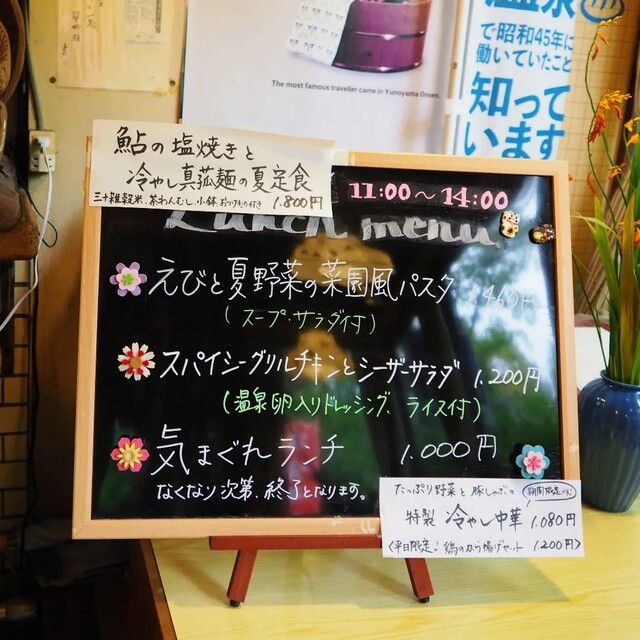 The most famous traveller came in Yunoyama Onsen.
で昭和45年に
働いていたこと
知って
います
鮎の塩焼きと
冷やし真菰麺の夏定食
三十雑穀米、茶わんむし、小鉢、おつけもの付き 1.800円
11:00〜14:00
Lunch menu
えびと夏野菜の菜園風パスタ
(スープ・サラダ付)
スパイシーグリルチキンとシーザーサラダ 1.200円
(温泉卵入りドレッシング、ライス付)
気まぐれランチ 1.000円
なくなり次第、終了となります。
たっぷり野菜と豚しゃぶの
特製 冷やし中華 1.080円
〈平日限定! 鶏のから揚げセット 1200円〉